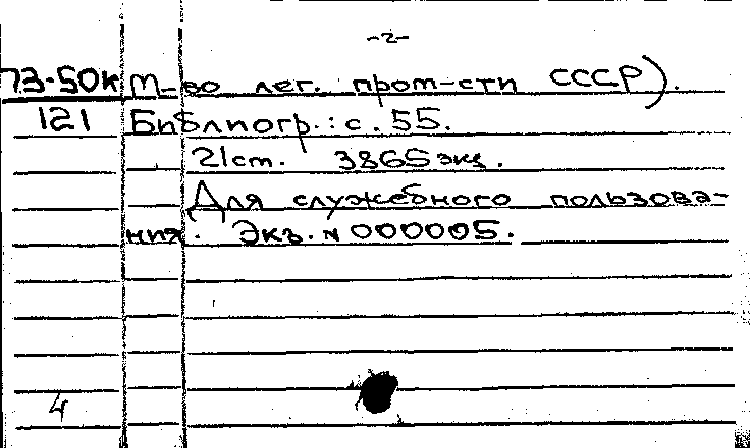 -2-
73-50к М-во лег. пром-сти СССР).
121 Библиогр.: с. 55.
21 см. 3865 экз.
Для служебного пользова-
ния. Экз. N 000005.
4